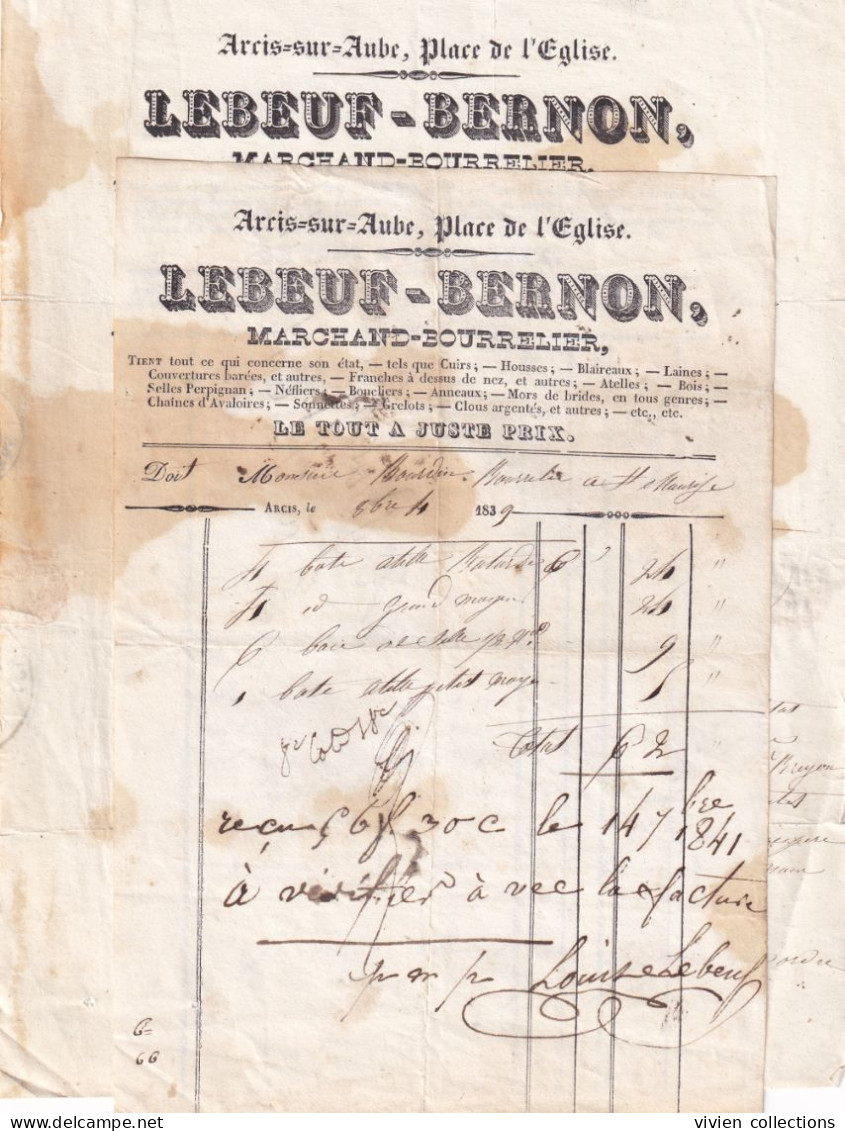 Arcis-sur-Aube, Place de l'Eglise.
LEBEUF-BERNON,
MARCHAND-BOURRELIER,
Arcis-sur-Aube, Place de l'Eglise.
LEBEUF-BERNON,
MARCHAND-BOURRELIER,
TIENT tout ce qui concerne son état, — tels que Cuirs; — Housses; — Blaireaux; — Laines; —
Couvertures barées, et autres, — Franches à dessus de nez, et autres; — Atelles; — Bois; —
Selles Perpignan; — Néfliers; — Boucliers; — Anneaux; — Mors de brides, en tous genres; —
Chaînes d'Avaloires; — Sonnettes; — Grelots; — Clous argentés, et autres; — etc., etc.
LE TOUT A JUSTE PRIX.
Doit Monsieur Bourdin Bourrelier a St
ARCIS, le 8bre 4 1839
4 6 24 "
4 id grand moyen 24 "
6 9 "
1 petit moyen 5 "
Total 62 "
reçu 56f 30c le 14 7bre 1841
à vérifier àvec la facture
p m p Louise Lebeuf
6=
66
ordre
vivien collections